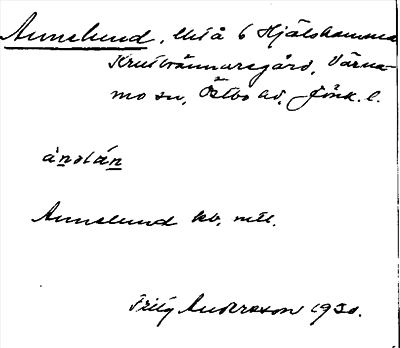 Annelund, lht å 6 Hjälshammar
Krutbrännaregård, Värna-
mo sn, Östbo hd, Jönk. l.
ànolán
Annelund kb, mtl.
Fritz Andersson 1930.